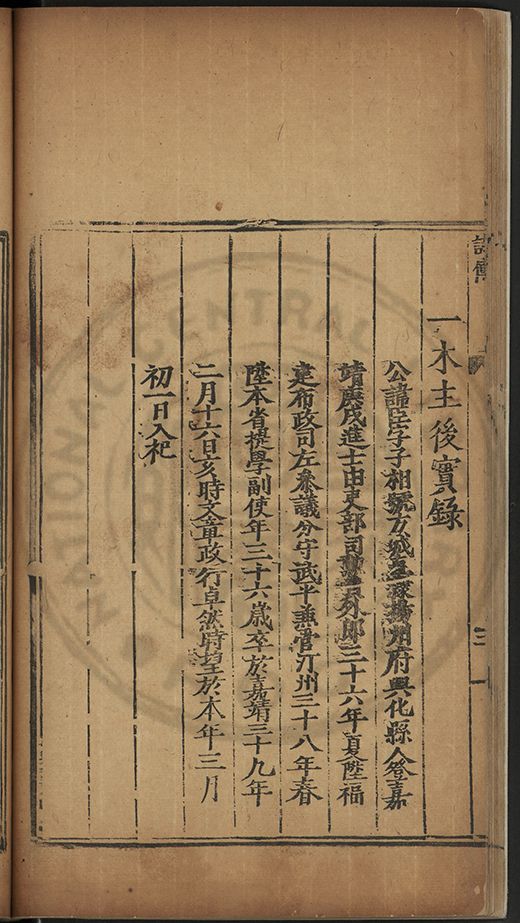 三
一木主後實錄
公諱臣字子相號方城直隸揚州府興化縣人登嘉
靖庚戌進士由吏部司勳員外郎三十六年夏陞福
建布政司左叅議分守武平兼管汀州三十八年春
陞本省提學副使年三十六歲卒於嘉靖三十九年
二月十六日亥時文章政行卓然時望於本年三月
初一日入祀